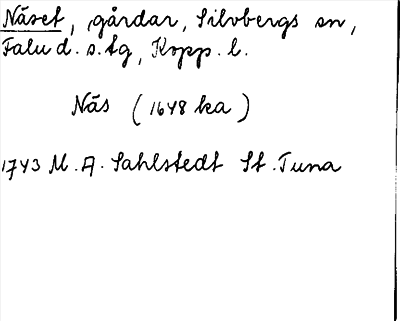 Näset, gårdar, Silvbergs sn,
Falu d. s. tg, Kopp. l.
Näs (1648 ka)
1743 M. A. Sahlstedt St. Tuna